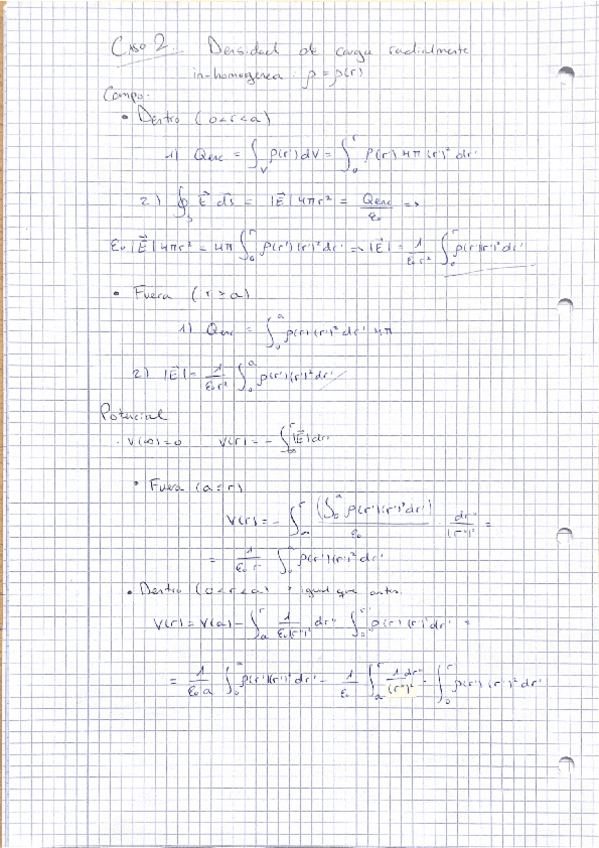 Caso 2: Densidad de carga radialmente
in-homogenea: ρ = ρ(r)
Campo:
• Dentro (0<r<a)
1) Qenc = ∫_V ρ(r) dV = ∫_0^r ρ(r') 4π (r')² dr'
2) ∮_S E⃗ ds⃗ = |E⃗| 4πr² = Qenc/ε₀ =>
ε₀ |E⃗| 4πr² = 4π ∫_0^r ρ(r')(r')² dr' => |E⃗| = 1/(ε₀r²) ∫_0^r ρ(r')(r')² dr'
• Fuera (r > a)
1) Qenc = ∫_0^a ρ(r')(r')² dr' 4π
2) |E⃗| = 1/(ε₀r²) ∫_0^a ρ(r')(r')² dr'
Potencial
· V(∞)=0 V(r) = - ∫_∞^r |E⃗| dr
• Fuera (a<r)
V(r) = - ∫_∞^r (∫_0^a ρ(r')(r')² dr')/ε₀ · dr''/(r'')² =
= 1/(ε₀ r) ∫_0^a ρ(r')(r')² dr'
• Dentro (0<r<a) igual que antes
V(r) = V(a) - ∫_a^r 1/(ε₀(r'')²) dr'' ∫_0^r'' ρ(r') (r')² dr' =
= 1/(ε₀ a) ∫_0^a ρ(r')(r')² dr' - 1/ε₀ ∫_a^r 1 dr''/(r'')² · ∫_0^r ρ(r') (r')² dr'